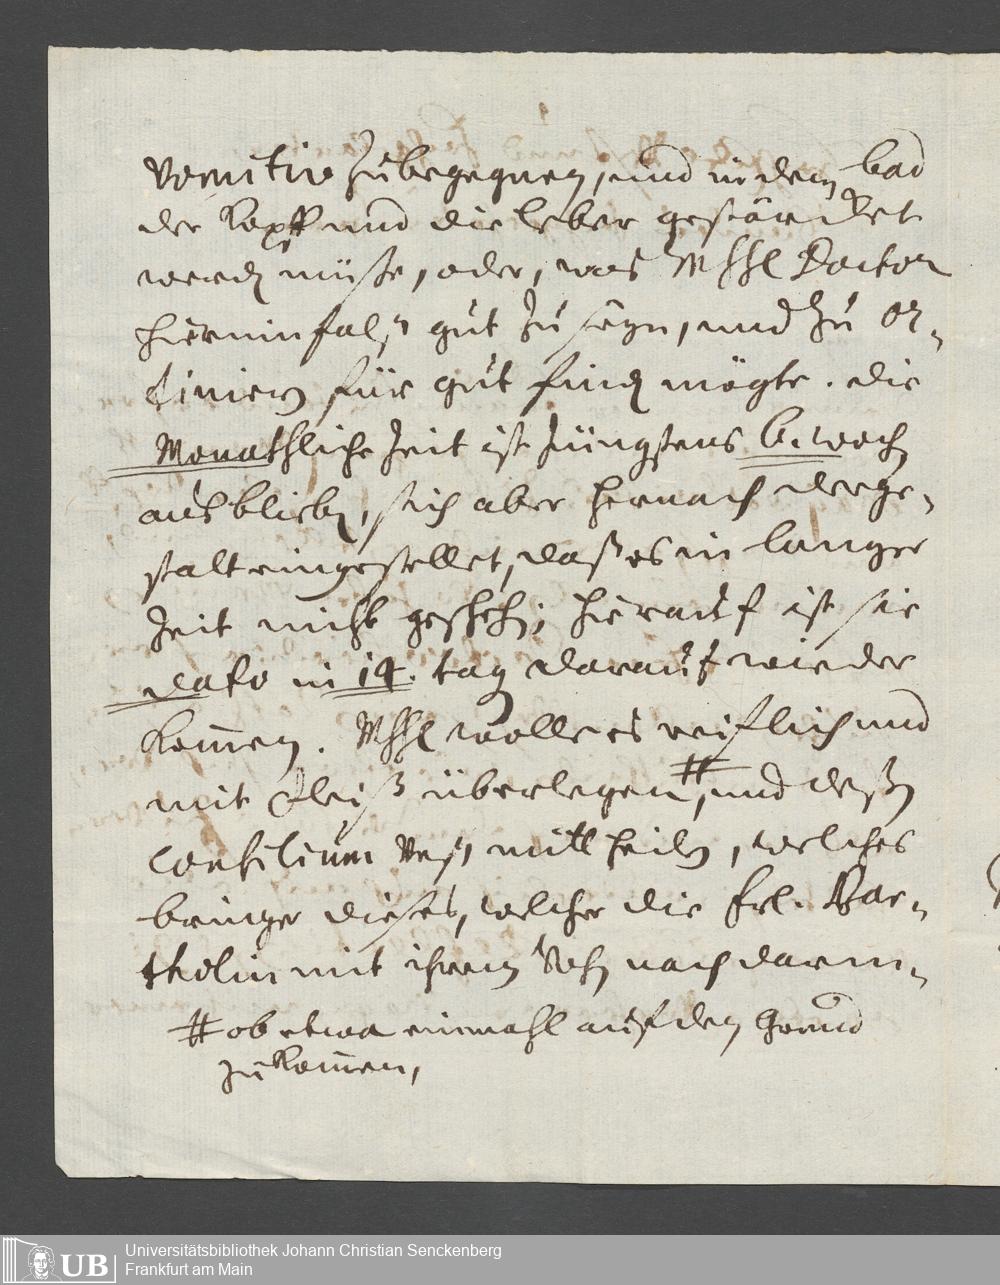 vomitiv zu begegnen, und in dem bad
der kopff und die leber gestärcket
werden müsse, oder, was MhhL Doctor
hierinnfalß gut zu seyn, und zu or-
diniren für gut finden mögte. die
Monathliche Zeit ist jüngstens 6. wochen
ausblieben, sich aber hernach derge-
stalt eingestellet, daß es in langer
Zeit nicht geschehen; hierauf ist sie
dato in 14. tag darauf wieder
kom̄en. MhhL wolle es reiflich und
mit Fleiß überlegen #, und deßen
Consilium unß mittheilen, welches
bringer dieses, welcher die frl. Bar-
tholin mit ihrem Sohn nach Darm-
# ob etwa einmahl auf den Grund
zu kom̄en,
Universitätsbibliothek Johann Christian Senckenberg
Frankfurt am Main
UB